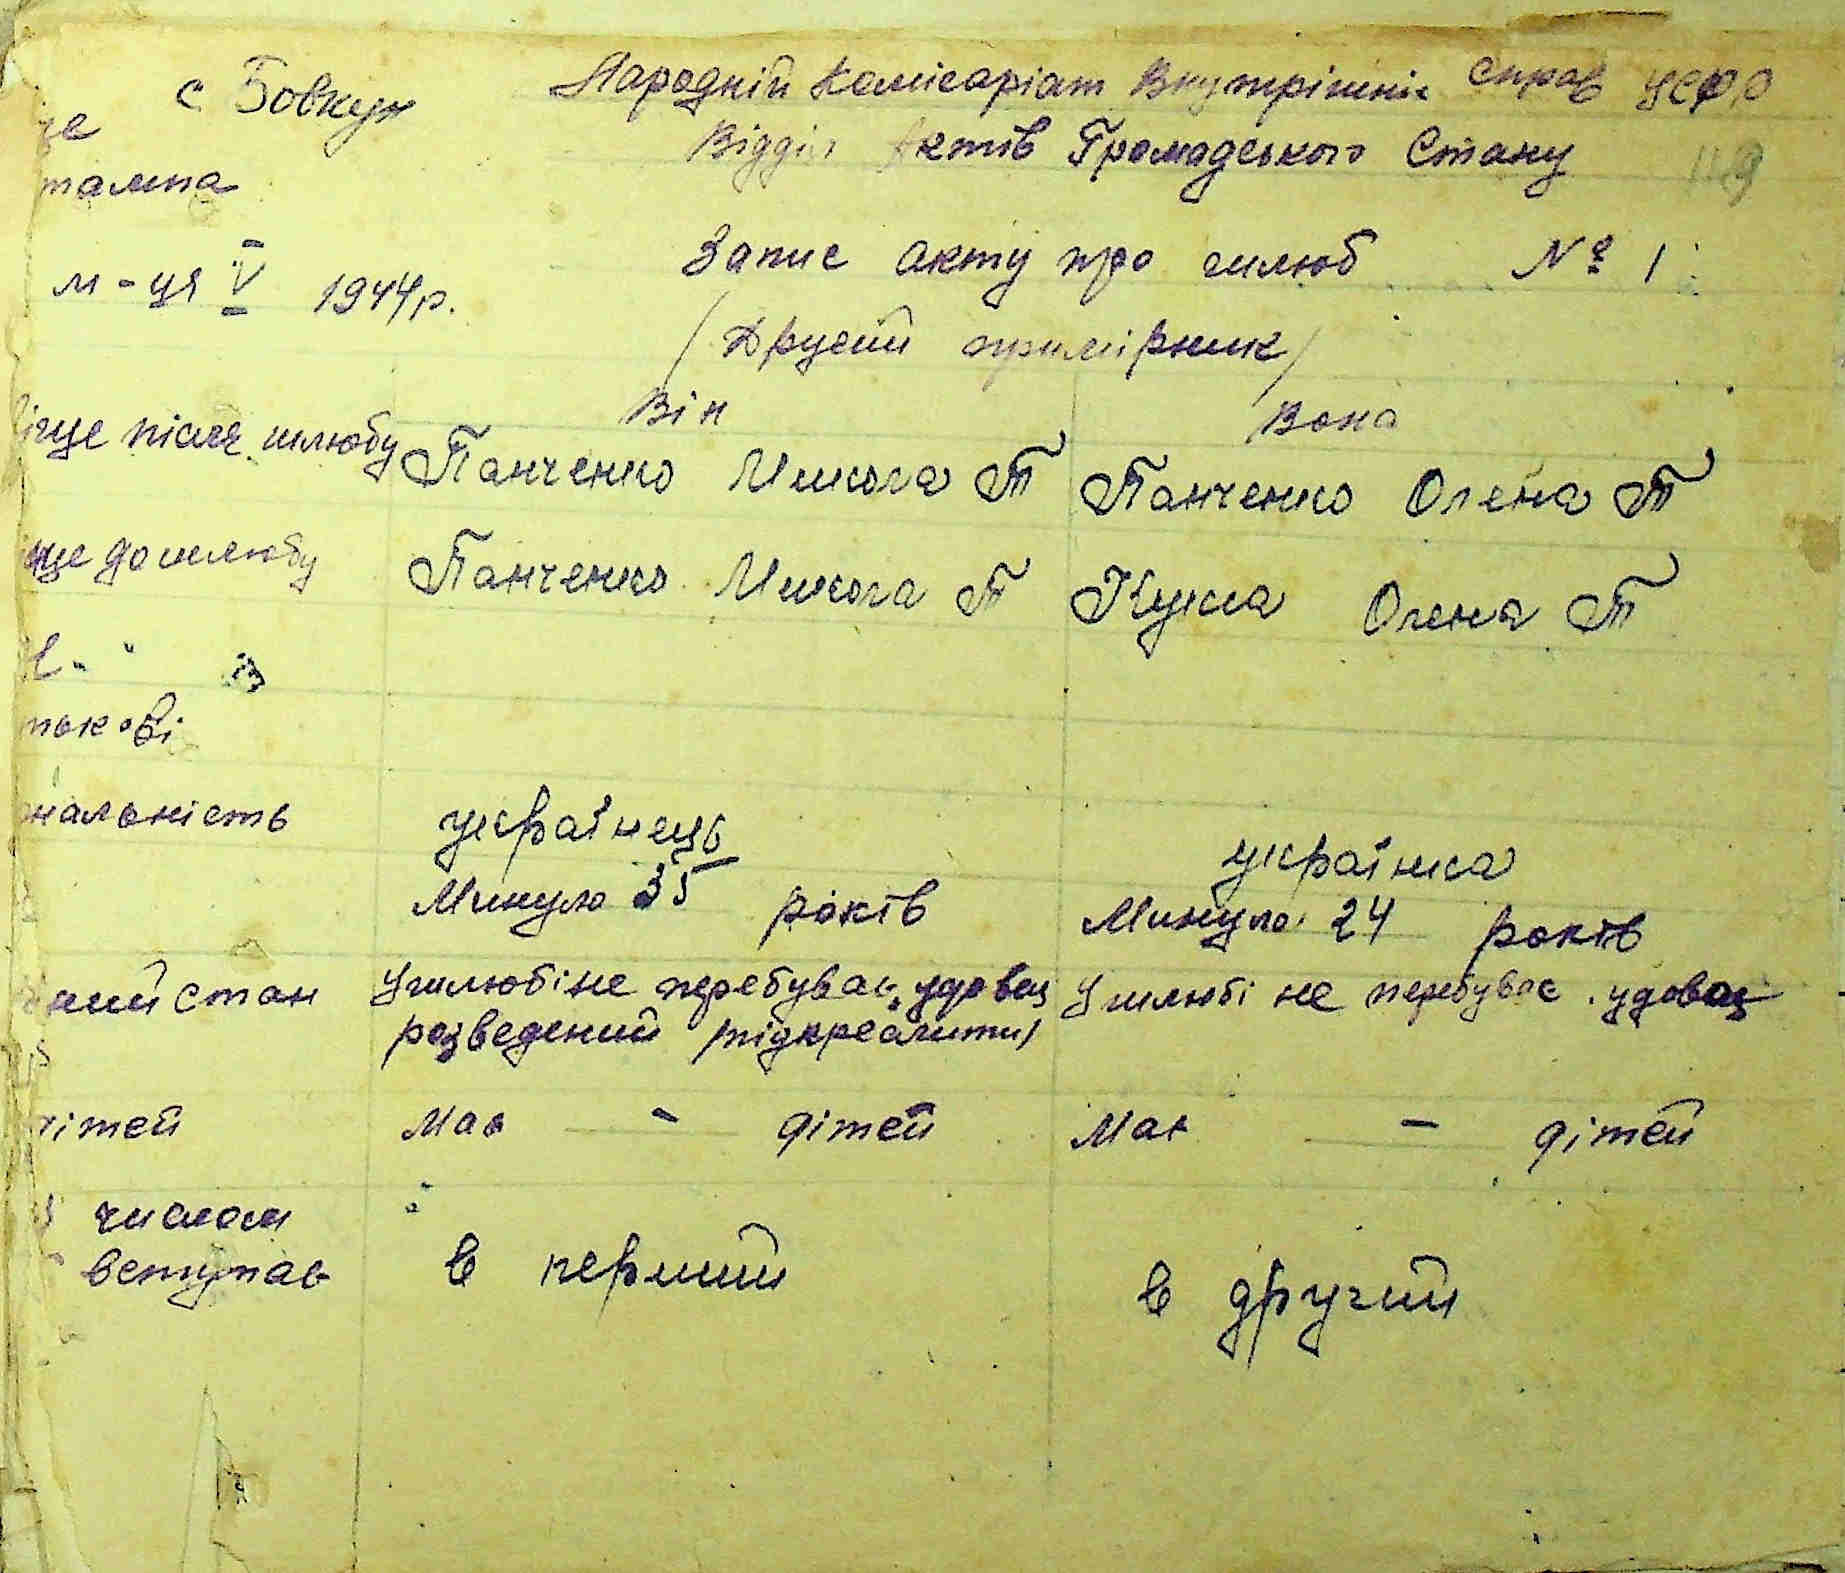 с. Бовкун Народній Комісаріат Внутрішніх Справ УСРР
це Відділ Актів Громадського Стану 119
тампа
м-ця V 1944 р. Запис акту про шлюб № 1
/Другий примірник/
Він Вона
ізще після шлюбу Панченко Микола Т Панченко Олена Т
ще до шлюбу Панченко Микола Т Олена Т
ткові
нальність українець українка
Минуло 35 років Минуло 24 років
ний стан У шлюбі не перебуває, удовец У шлюбі не перебуває. удовец
розведений /підкреслити/
ітей Має - дітей Має - дітей
числом
вступає в перший в другий